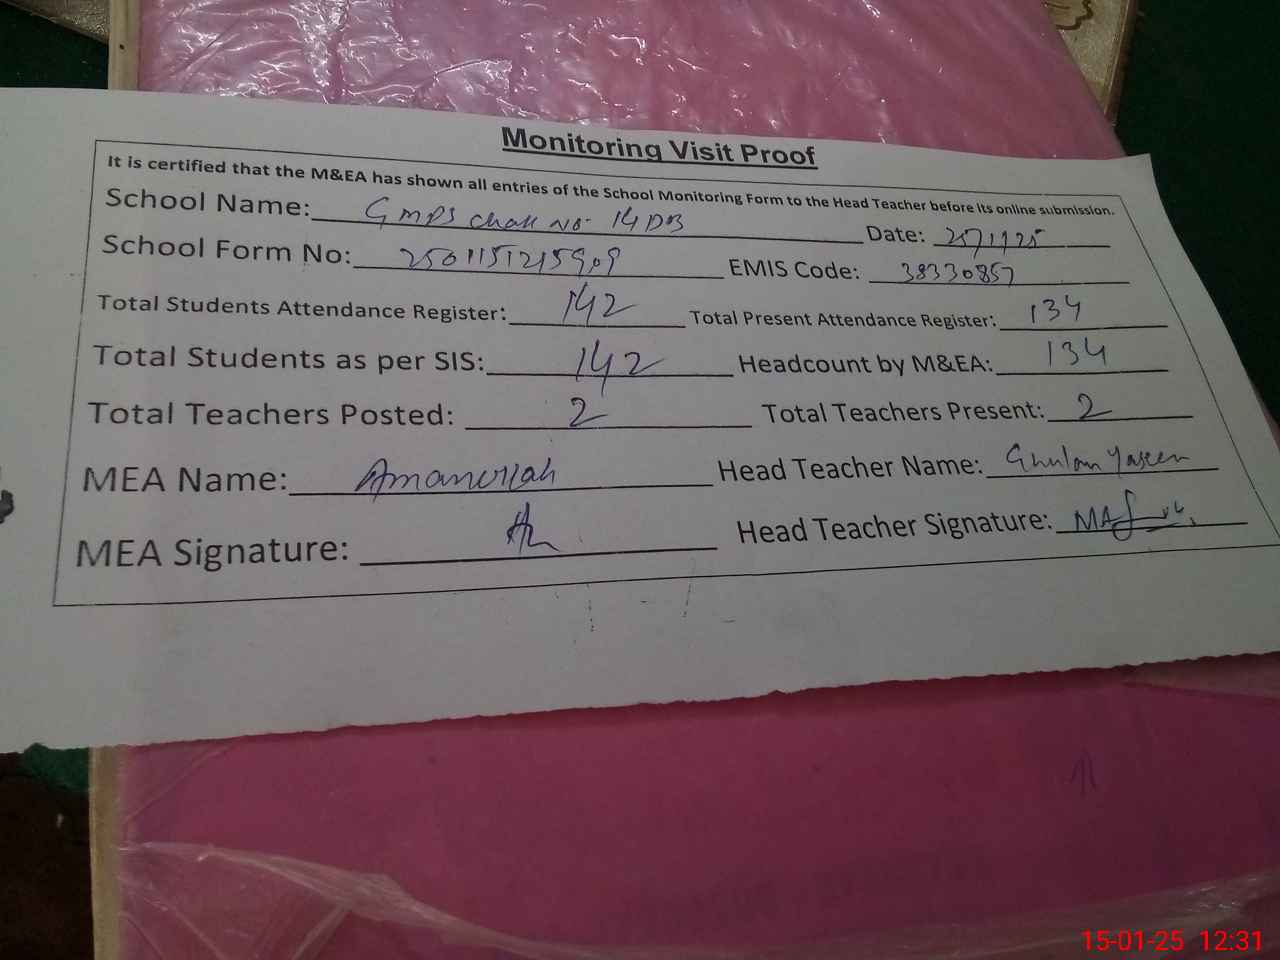 Monitoring Visit Proof
It is certified that the M&EA has shown all entries of the School Monitoring Form to the Head Teacher before its online submission.
School Name: GMPS Chak No. 14DB Date:
School Form No: EMIS Code: 38330857
Total Students Attendance Register: 142 Total Present Attendance Register: 134
Total Students as per SIS: 142 Headcount by M&EA: 134
Total Teachers Posted: 2 Total Teachers Present: 2
MEA Name: Amanullah Head Teacher Name: Ghulam Yaseen
MEA Signature: Head Teacher Signature:
15-01-25 12:31